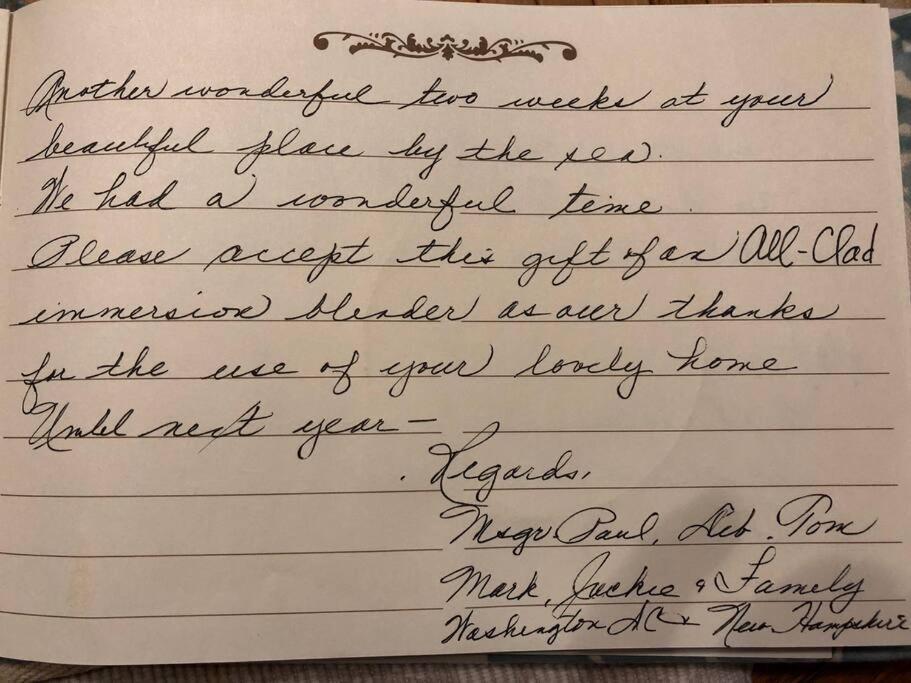 Another wonderful two weeks at your
beautiful place by the sea.
We had a wonderful time.
Please accept this gift of an All-Clad
immersion blender as our thanks
for the use of your lovely home
Until next year —
Regards,
Msgr. Paul, Deb, Tom
Mark, Jackie & Family
Washington DC & New Hampshire